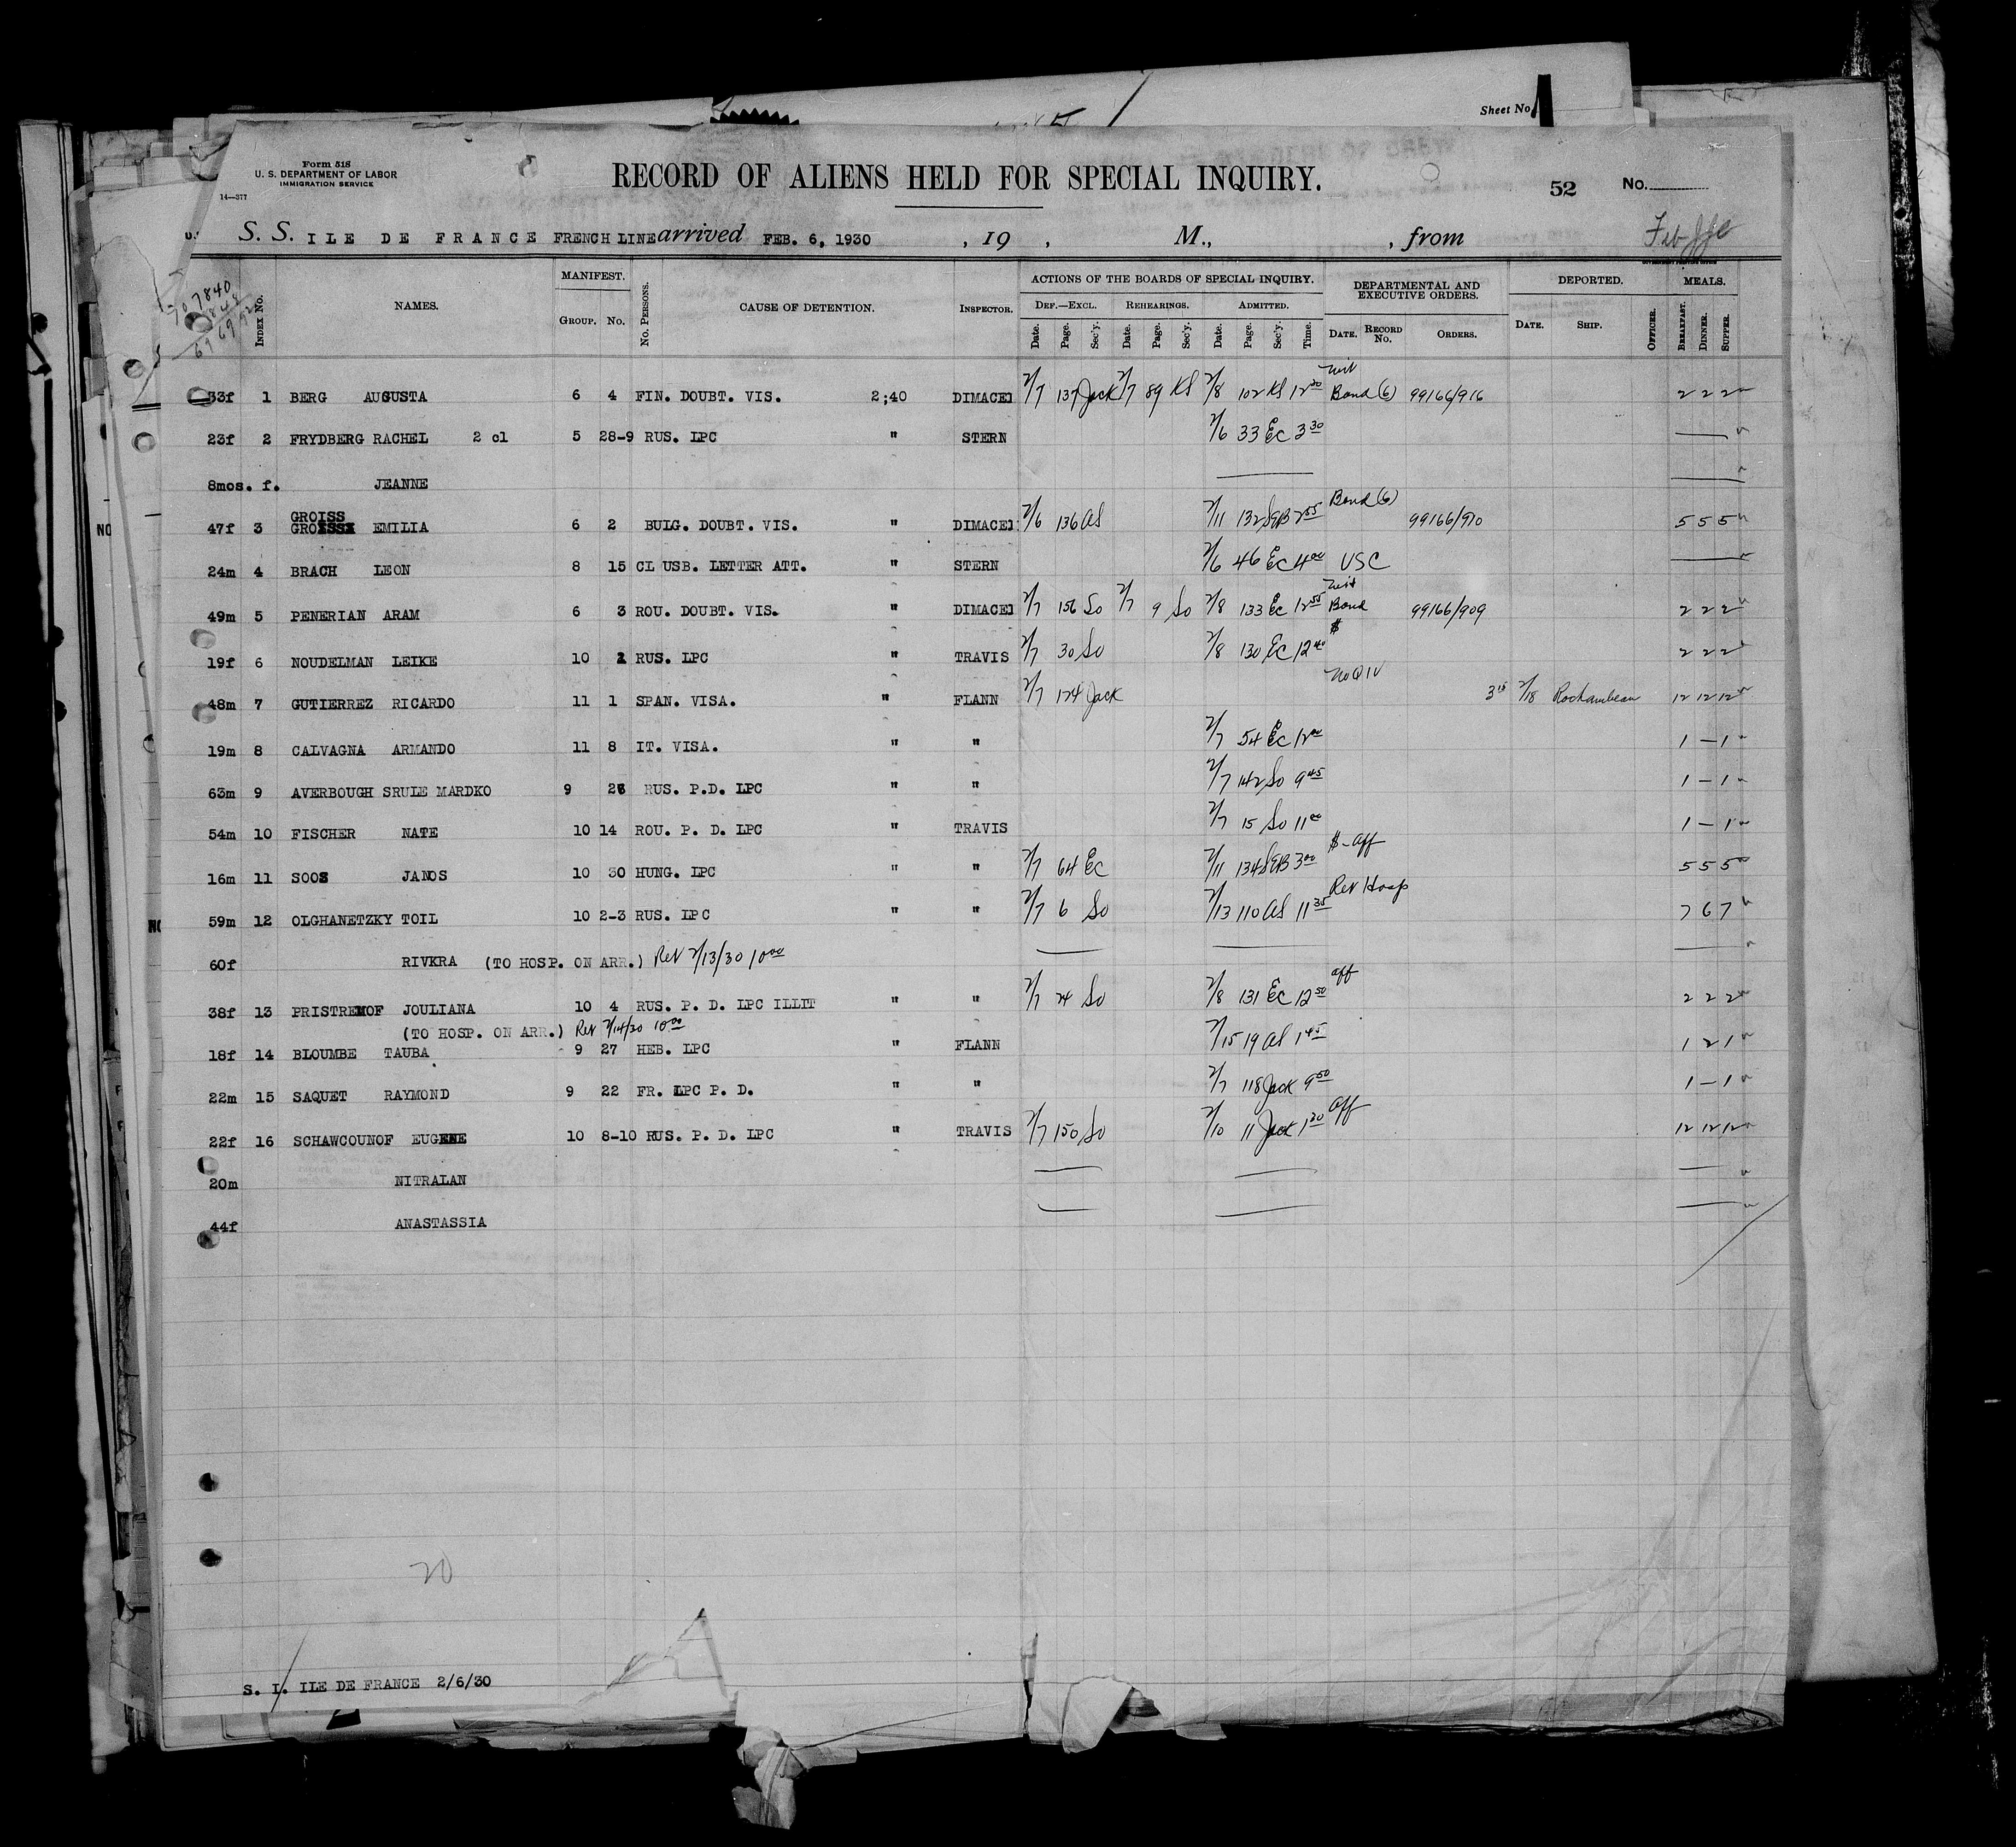 Sheet No.
Form 518
U. S. DEPARTMENT OF LABOR
IMMIGRATION SERVICE
14—377
RECORD OF ALIENS HELD FOR SPECIAL INQUIRY.
52 No.
S. S. ILE DE FRANCE FRENCH LINE arrived FEB. 6, 1930 , 19 , M., , from
Index No. NAMES. MANIFEST. Group. No. No. Persons. CAUSE OF DETENTION. Inspector. ACTIONS OF THE BOARDS OF SPECIAL INQUIRY. DEPARTMENTAL AND EXECUTIVE ORDERS. DEPORTED. MEALS.
Def.—Excl. Rehearings. Admitted.
Date. Page. Sec'y. Date. Page. Sec'y. Date. Page. Sec'y. Time. Date. Record No. Orders. Date. Ship. Officer. Breakfast. Dinner. Supper.
33f 1 BERG AUGUSTA 6 4 FIN. DOUBT. VIS. 2;40 DIMACEI 2/7 137 Jack 2/7 89 KS 2/8 102 KS 12 30 Bond (6) 99166/916 2 2 2
23f 2 FRYDBERG RACHEL 2 cl 5 28-9 RUS. LPC " STERN 2/6 33 Ec 3 30
8mos. f. JEANNE
GROISS
47f 3 EMILIA 6 2 BULG. DOUBT. VIS. " DIMACEI 2/6 136 as 2/11 132 2 55 Bond (6) 99166/910 5 5 5
24m 4 BRACH LEON 8 15 CL USB. LETTER ATT. " STERN 2/6 46 Ec 4 00 USC
49m 5 PENERIAN ARAM 6 3 ROU. DOUBT. VIS. " DIMACEI 2/7 156 So 2/7 9 So 2/8 133 Ec 12 55 Bond 99166/909 2 2 2
19f 6 NOUDELMAN LEIKE 10 1 RUS. LPC " TRAVIS 2/7 30 So 2/8 130 Ec 12 40 $ 2 2 2
48m 7 GUTIERREZ RICARDO 11 1 SPAN. VISA. " FLANN 2/7 124 Jack No QIV 3 15 2/18 Rochambeau 12 12 12
19m 8 CALVAGNA ARMANDO 11 8 IT. VISA. " " 2/7 54 Ec 12 00 1 – 1
63m 9 AVERBOUGH SRULE MARDKO 9 26 RUS. P.D. LPC " " 2/7 142 So 9 45 1 – 1
54m 10 FISCHER NATE 10 14 ROU. P. D. LPC " TRAVIS 2/7 15 So 11 00 1 – 1
16m 11 SOOS JANOS 10 30 HUNG. LPC " " 2/7 64 Ec 2/11 134 3 00 $ - aff 5 5 5
59m 12 OLGHANETZKY TOIL 10 2-3 RUS. LPC " " 2/7 6 So 2/13 110 as 11 35 Rel Hosp 7 6 7
60f RIVKRA (TO HOSP. ON ARR.) Rel 2/13/30 10 00
38f 13 PRISTREMOF JOULIANA 10 4 RUS. P. D. LPC ILLIT " " 2/7 24 So 2/8 131 Ec 12 50 aff 2 2 2
(TO HOSP. ON ARR.) Rel 2/14/30 10 00
18f 14 BLOUMBE TAUBA 9 27 HEB. LPC " FLANN 2/15 19 as 1 45 1 2 1
22m 15 SAQUET RAYMOND 9 22 FR. LPC P. D. " " 2/7 118 Jack 9 50 1 – 1
22f 16 SCHAWCOUNOF EUGENE 10 8-10 RUS. P. D. LPC " TRAVIS 2/7 150 So 2/10 11 Jack 1 30 aff 12 12 12
20m NITRALAN
44f ANASTASSIA
20
S. I. ILE DE FRANCE 2/6/30